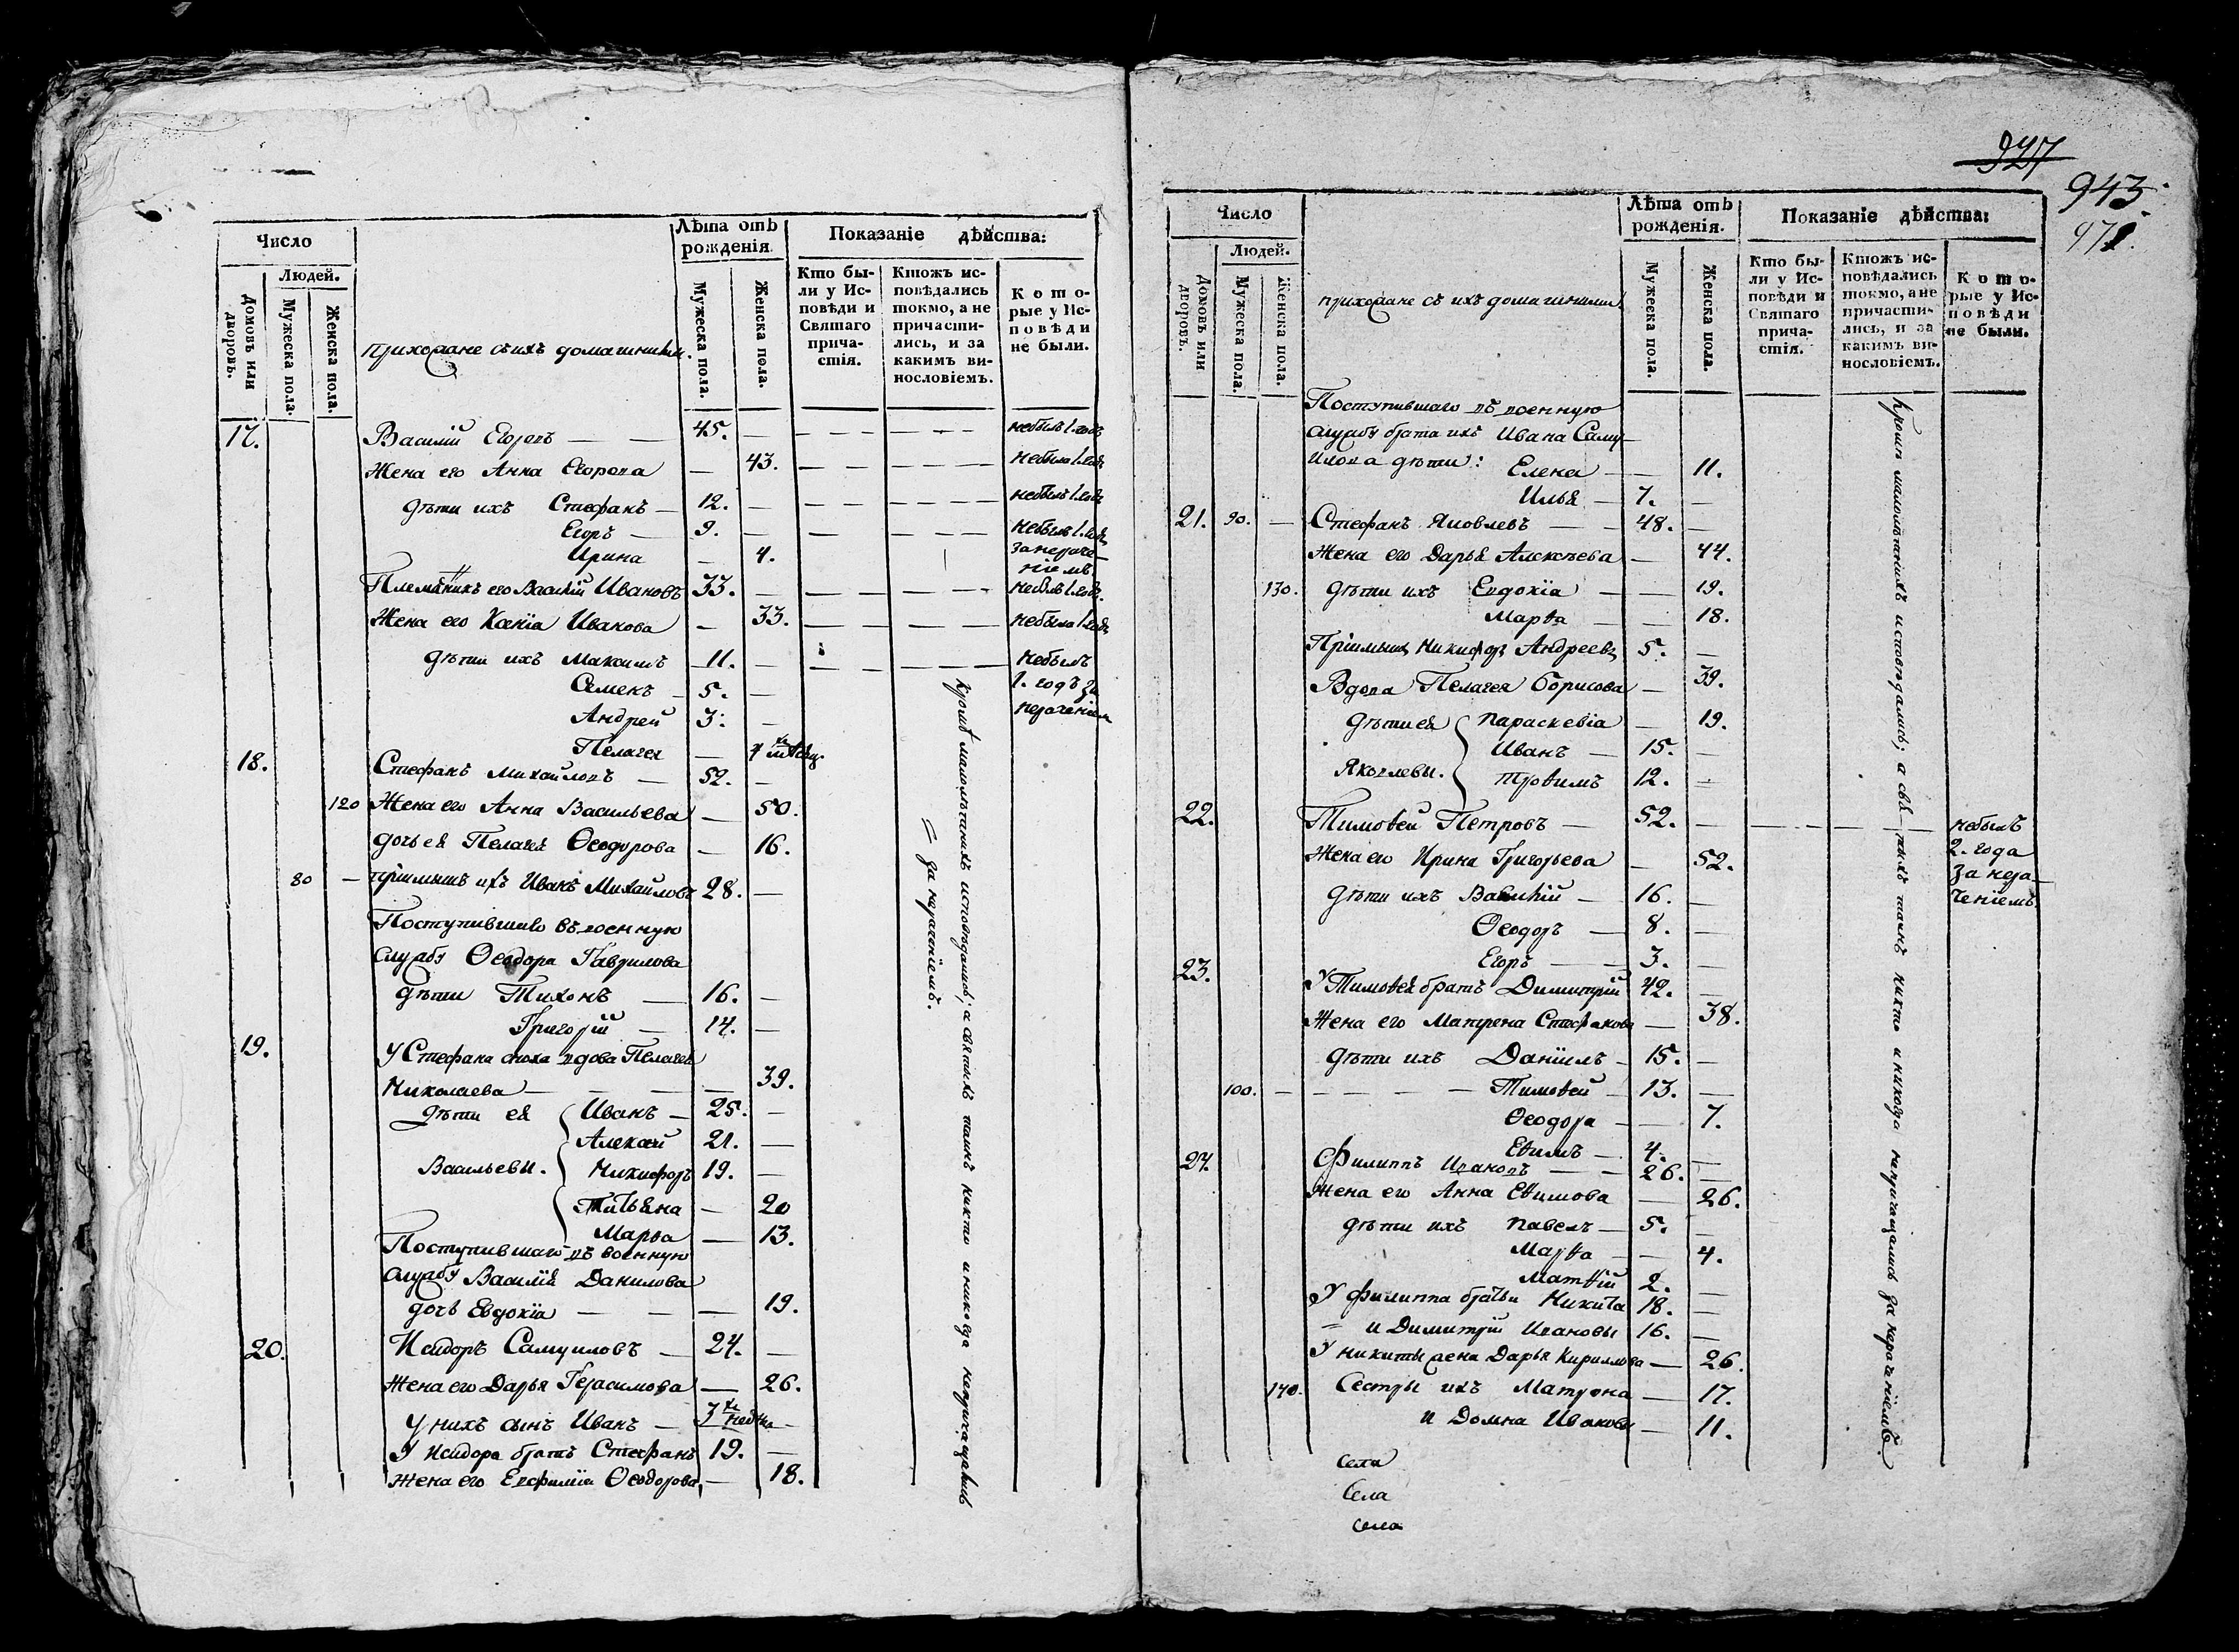 Число
Людей.
Домовъ или дворовъ.
Мужеска пола.
Женска пола.
прихожане съ ихъ домашними.
Лѣта отъ рожденія.
Мужеска пола.
Женска пола.
Показаніе дѣйства:
Кто были у Исповѣди и Святаго причастія.
Ктожъ исповѣдались токмо, а не причастились, и за какимъ винословіемъ.
Которые у Исповѣди не были.
17. Василій Егоровъ — — 45. — небылъ 1. годъ
Жена его Анна Егорова — 43. — небыла 1. годъ
дѣти ихъ Стефанъ — 12. — небылъ 1. годъ
Егоръ — 9. — небылъ 1. годъ
Ирина — 4. за нераче-
ніемъ.
Племянникъ его Василій Ивановъ 33. — небылъ 1. годъ.
Жена его Ксенія Иванова — 33. — небыла 1. годъ
дѣти ихъ Максимъ 11. — небылъ
Семенъ — 5. — 1. годъ за
Андрей 3. — нераченіем
Пелагея — 4 мѣсяц.
18. Стефанъ Михайловъ — 52. —
120 Жена его Анна Васильева — 50.
дочь ея Пелагея Ѳеодорова — 16.
80 — пріимышъ ихъ Иванъ Михайловъ 28. —
Поступившаго въ военную
службу Ѳеодора Гаврилова
дѣти Тихонъ — 16. —
Григорій — 14. —
19. У Стефана сноха вдова Пелагея
Николаева — — — 39.
дѣти ея Иванъ — 25. —
Алексѣй 21. —
Васильевы. Никифоръ 19. —
Татьяна — 20
Марѳа — 13.
Поступившаго въ военную
службу Василія Данилова
дочь Евдокія — — — 19.
20. Исидоръ Самуиловъ — 24. —
Жена его Дарья Герасимова — 26.
У нихъ сынъ Иванъ — 3 недѣл. —
У Исидора братъ Стефанъ 19. —
Жена его Евфимія Ѳеодорова — 18.
Кромѣ малолѣтнихъ исповѣдались; а святыхъ таинъ никто и никогда непричащались
= за нераченіемъ.
927
943.
971.
Число
Людей.
Домовъ или дворовъ.
Мужеска пола.
Женска пола.
прихожане съ ихъ домашними
Лѣта отъ рожденія.
Мужеска пола.
Женска пола.
Показаніе дѣйства:
Кто были у Исповѣди и Святаго причастія.
Ктожъ исповѣдались токмо, а не причастились, и за какимъ винословіемъ.
Которые у Исповѣди не были.
Поступившаго въ военную
службу брата ихъ Ивана Саму-
илова дѣти: Елена — — 11.
Илья — 7. —
21. 90. — Стефанъ Яковлевъ — — 48. —
Жена его Дарья Алексѣева — 44.
130. дѣти ихъ Евдокія — — 19.
Марѳа — — 18.
Пріимышъ Никифоръ Андреевъ 5. —
Вдова Пелагея Борисова — 39.
дѣти ея Параскевія — 19.
Иванъ — 15. —
Яковлевы. Трофимъ 12. —
22. Тимоѳей Петровъ — 52. — небылъ
Жена его Ирина Григорьева — 52. 2. года
за нера-
дѣти ихъ Василій — 16. — ченіемъ.
Ѳеодоръ — 8. —
Егоръ — — 3. —
23. У Тимоѳея братъ Димитрій 42. —
Жена его Матрена Стефанова — 38.
дѣти ихъ Даніилъ — 15. —
100. — — — — — Тимоѳей — 13. —
Ѳеодора — — 7.
Еѳимъ — 4. —
24. Филиппъ Ивановъ — — 26. —
Жена его Анна Еѳимова — 26.
дѣти ихъ Павелъ — 5. —
Марѳа — — 4.
Матѳій 2. —
У Филиппа братьи Никита 18. —
и Димитрій Ивановы 16. —
У Никиты жена Дарья Кириллова — 26.
140. Сестры ихъ Матрона — 17.
и Домна Ивановы — 11.
Кромѣ малолѣтнихъ исповѣдались; а свя-тыхъ таинъ никто и никогда непричащались за нераченіемъ.
Села
Села
Села